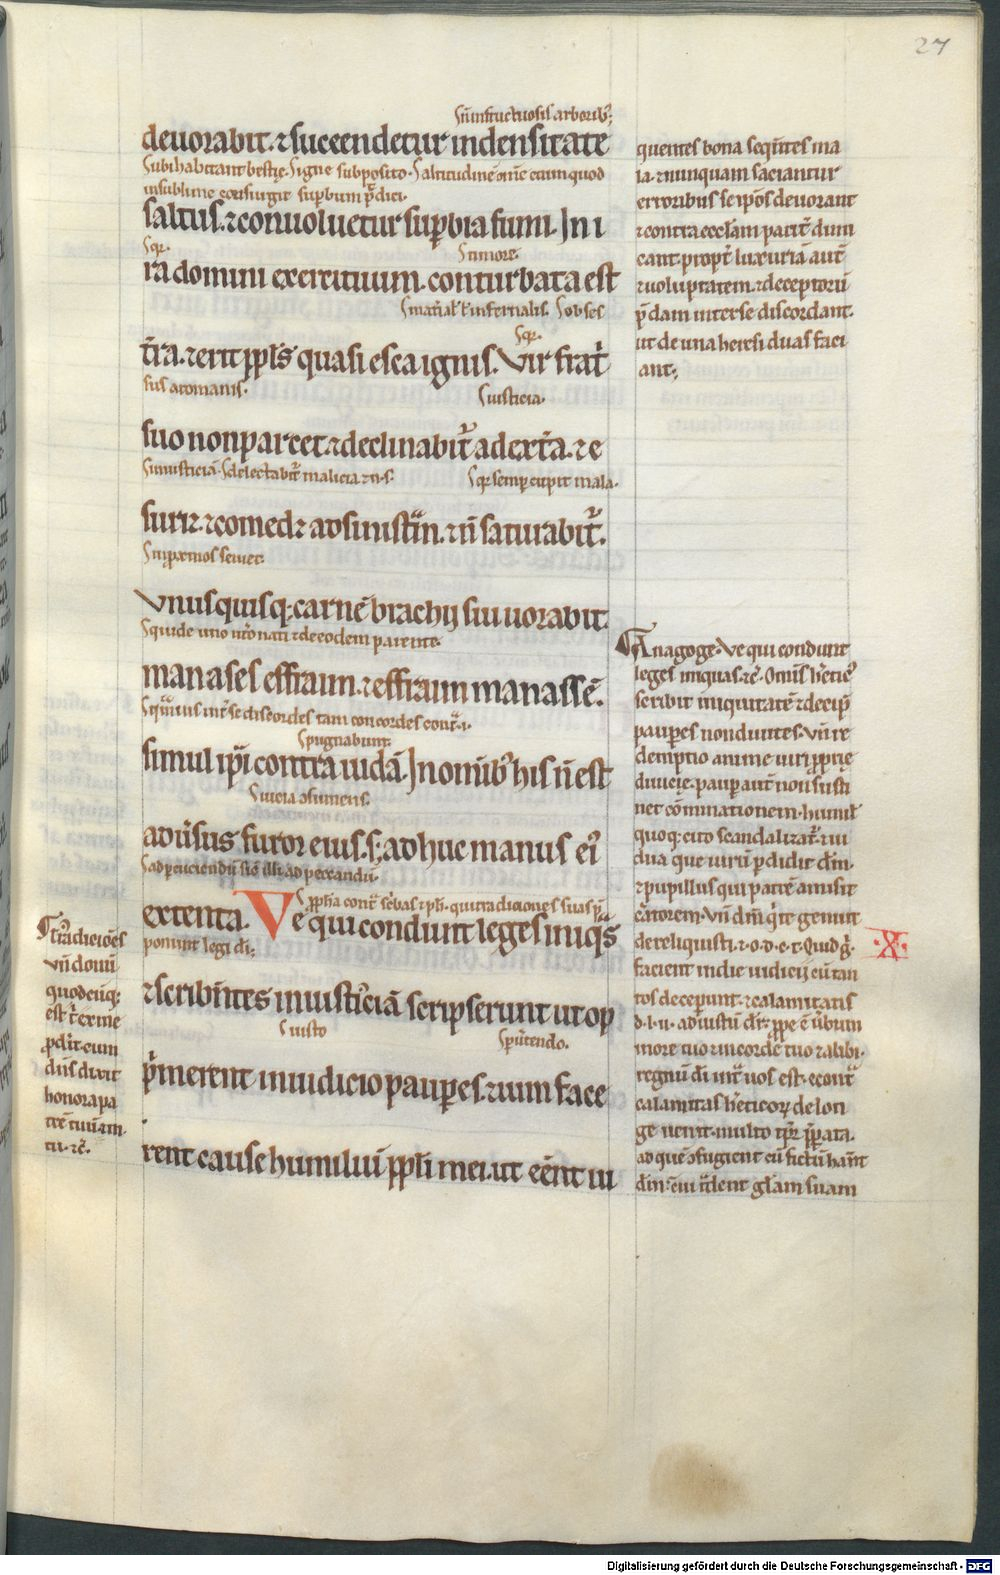 27
S. infructuosis arborib;
deuorabit. ⁊ succendetur in densitate
S. ubi habitant bestie. S. igne subposito. S. altitudinē om̄e etiam quod
in sublime consurgit suꝑbum p̄dici.
saltus. ⁊ conuoluetur suꝑbia fumi. In i
S. timore.
ra domini exercituum. conturbata est
S. infernalis. S. obses
t̄ra. ⁊ erit ppl̄s quasi esca ignis. Vir frat̄
sus a romanis.
S. iusticia.
suo non parcet. ⁊ declinabit̄ ad dext̄a. ⁊ e
S. iniusticiā. S. delectabit̄ malicia
S. semper cupit mala.
suriet. ⁊ comedet ad sinist̄m. ⁊ n̄ saturabit̄.
S. proximos
Vnusquisq; carnē brachij sui uorabit.
S. qui de uno utero nati ⁊ de eodem parente.
manases effraim. ⁊ effraim manassē.
S. quāuis int̄ se discordes tam concordes cont̄
S. pugnabunt.
simul ip̄i contra iudā. In om̄ib; his n̄ est
auersus furor eius. s; adhuc manus ei
S. ad percuciendū
extenta. Ve qui condiunt leges iniq̄s
ponunt legi dī;
⁊ scribn̄tes iniusticiā scripserunt ut op
S. iusto
p̄merent in iudicio pauꝑes. ⁊ uim face
rent cause humiliū ppl̄i mei. ut eēnt ui
quentes bona seqn̄tes ma
la. ⁊ nunquam saciantur
erroribus se ip̄os deuorant
⁊ contra eccl̄am parit̄ dimi
cant. propt̄ luxuriā aut̄
⁊ uoluptatem. ⁊ deceptorū
p̄dam inter se discordant.
ut de una heresi duas faci
ant;
Anagoge. Ve qui condunt
leges iniquas. ⁊c̄. Omīs h̄etic
scribit iniquitatē ⁊ decip̄
pauꝑes non diuites. Vn̄ re
demptio anime uiri ꝓprię
diuicię. pauꝑ aut̄ non susti
net cōminationem. humil
quoq; cito scandalizat̄. ⁊ ui
dua que uirū ꝑdidit dīn.
⁊ pupillus qui patrē amisit
c̄atorem. Vn̄ dn̄m q̄i te genuit
dereliquisti. ⁊ o. d. e. t. Quid g̊
facient in die iudicij cū tan
tos deceꝑunt. ⁊ calamitatis
d. l. u. ad iustū dr̄. ꝓpe ē ūbum
in ore tuo ⁊ in corde tuo ⁊ alibi.
regnū dī int̄ uos est. econt̄
calamitas h̄eticoꝝ de lon
ge uenit. multo tp̄r p̄parata.
ad quē ɔfugient cū fictū habn̄t
dīn. ⁊ cui t̄dent gl̄am suam
·X·
Tradicioēs
vn̄ domī
quodcūq;
est t̄ ex me
ꝓd̄it eum
dūs dixit
honora pa
trē tuū ⁊ m.
tu. ⁊c̄.
Digitalisierung gefördert durch die Deutsche Forschungsgemeinschaft - DFG